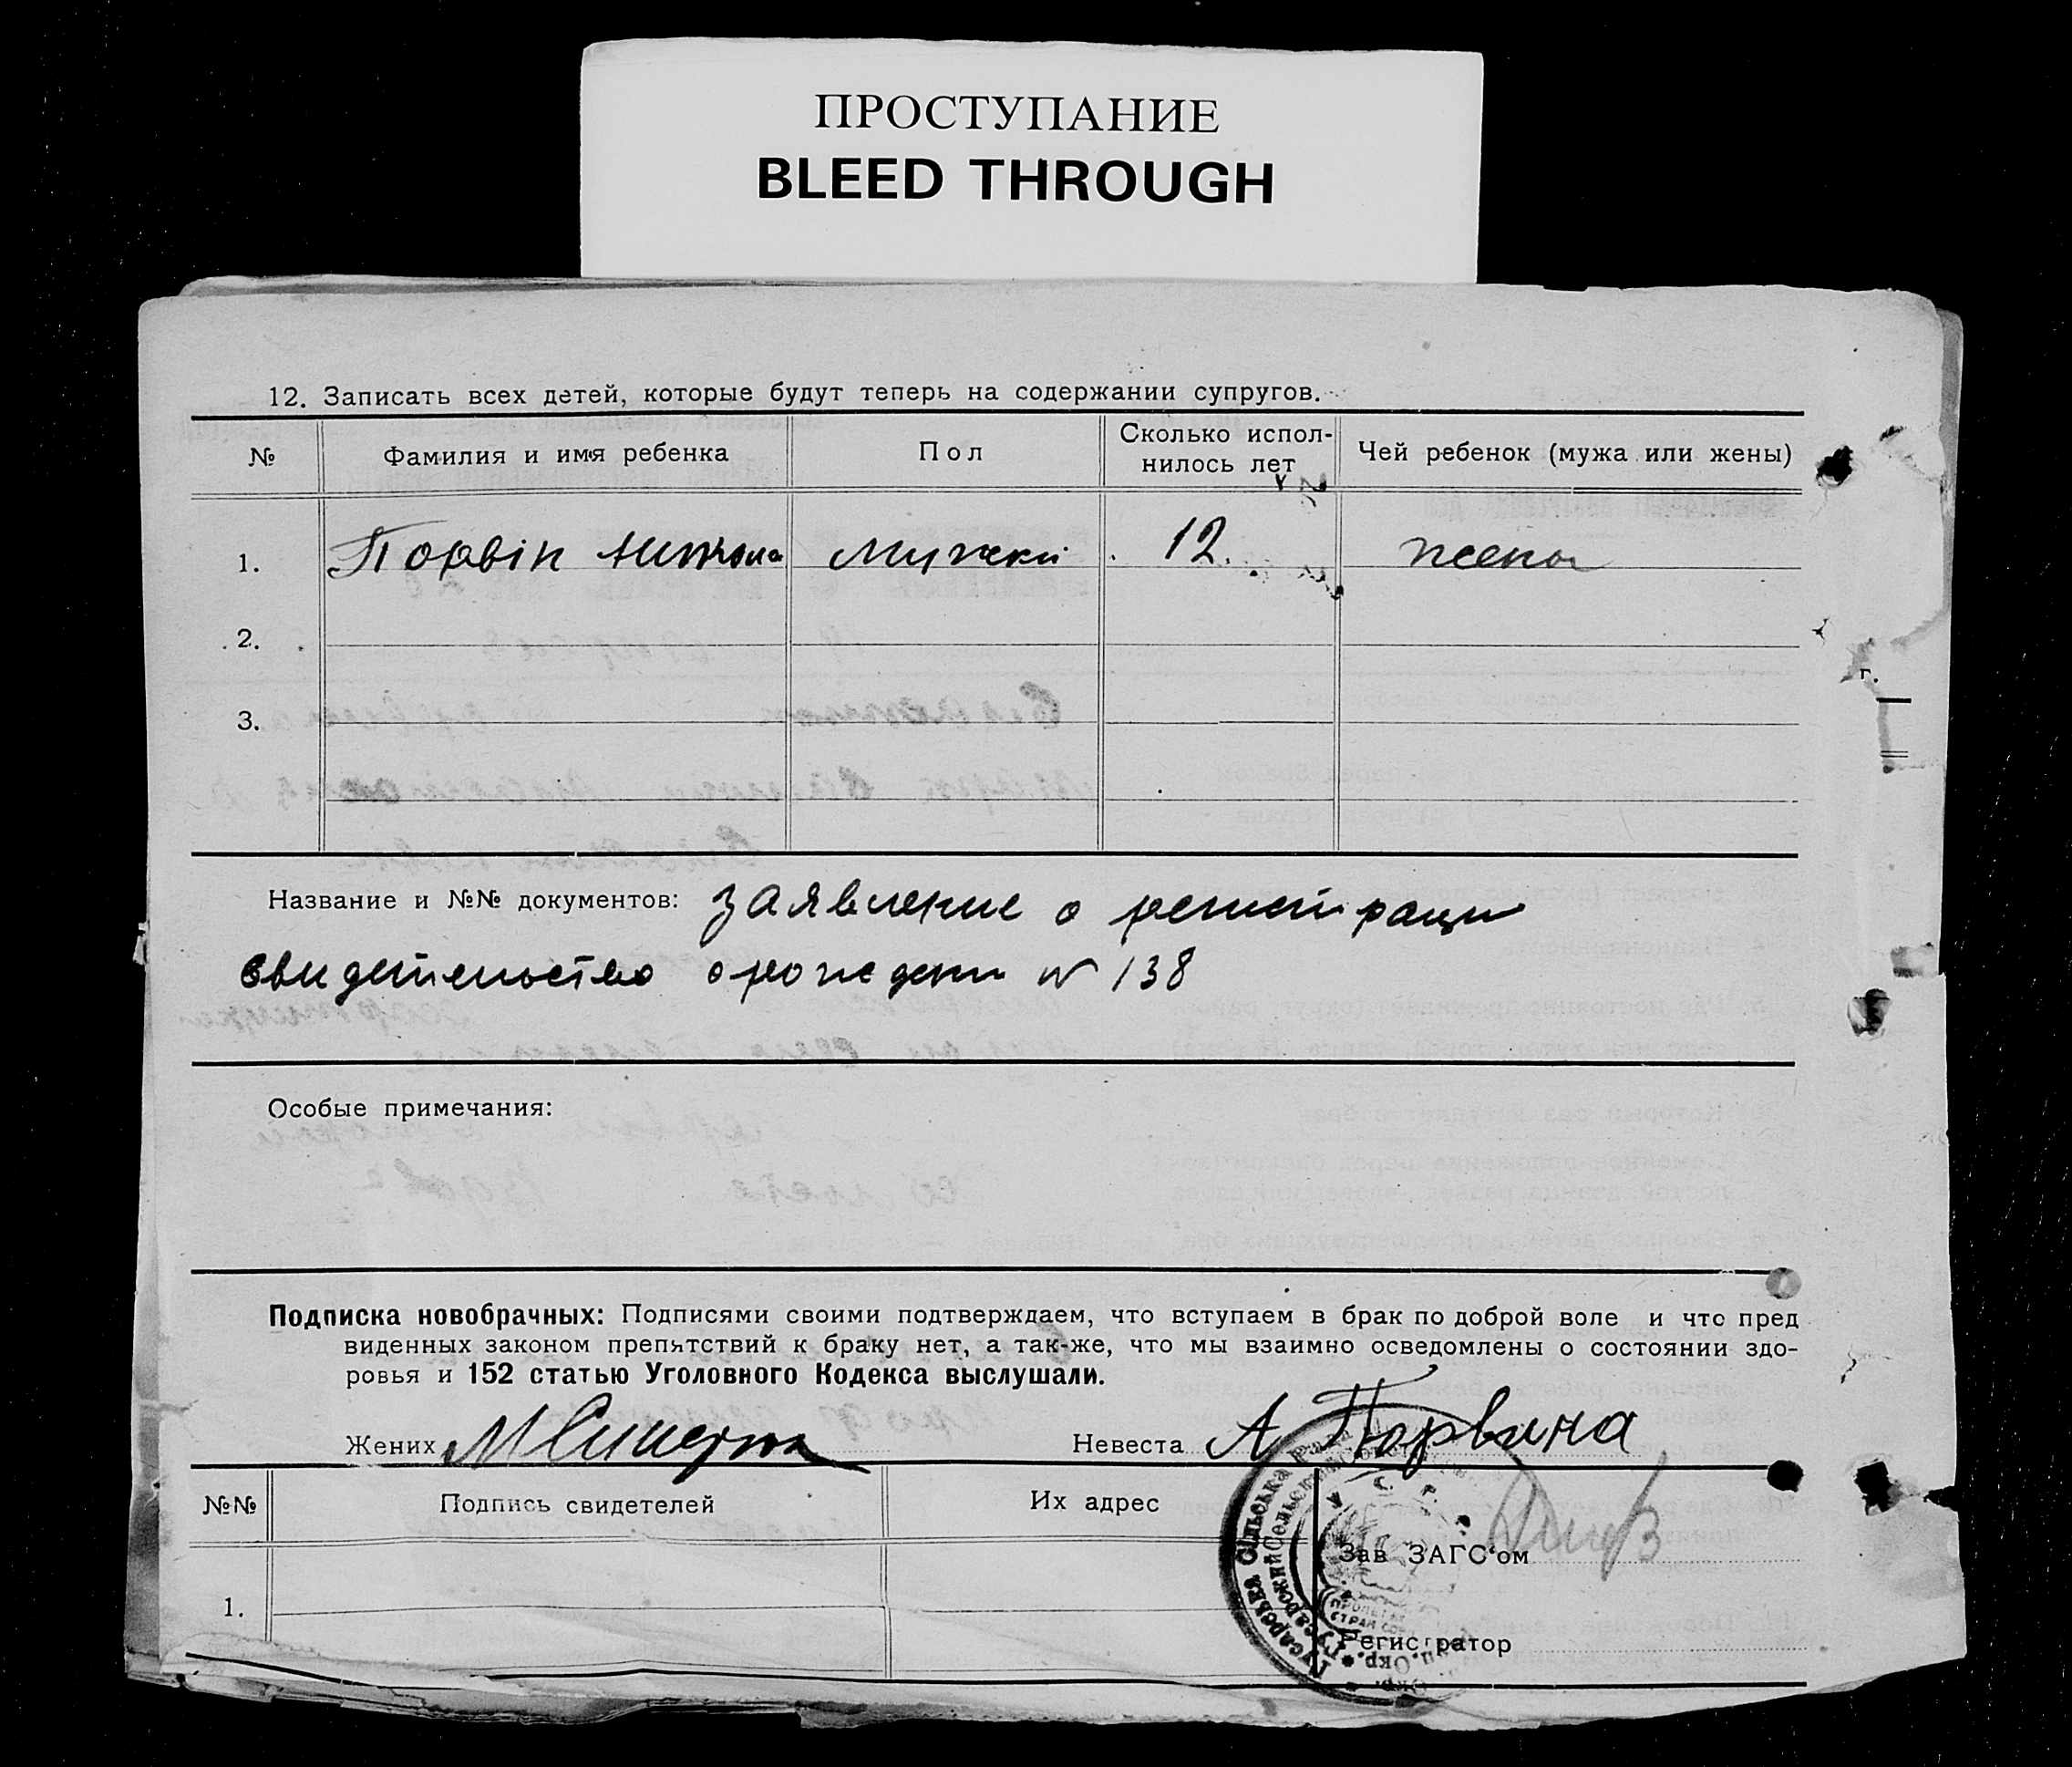 ПРОСТУПАНИЕ
BLEED THROUGH
12. Записать всех детей, которые будут теперь на содержании супругов.
№ Фамилия и имя ребенка Пол Сколько испол- нилось лет Чей ребенок (мужа или жены)
1. Порвін мужски 12. жены
2.
3.
Название и №№ документов: заявление о регистраци
свидетельство о рождени № 138
Особые примечания:
Подписка новобрачных: Подписями своими подтверждаем, что вступаем в брак по доброй воле и что пред
виденных законом препятствий к браку нет, а так-же, что мы взаимно осведомлены о состоянии здо-
ровья и 152 статью Уголовного Кодекса выслушали.
Жених Невеста А Порвина
№№ Подпись свидетелей Их адрес
Зав ЗАГС‘ом
1.
Регистратор
Гусарська Сільська Рада
Гусарский Сельск
г.